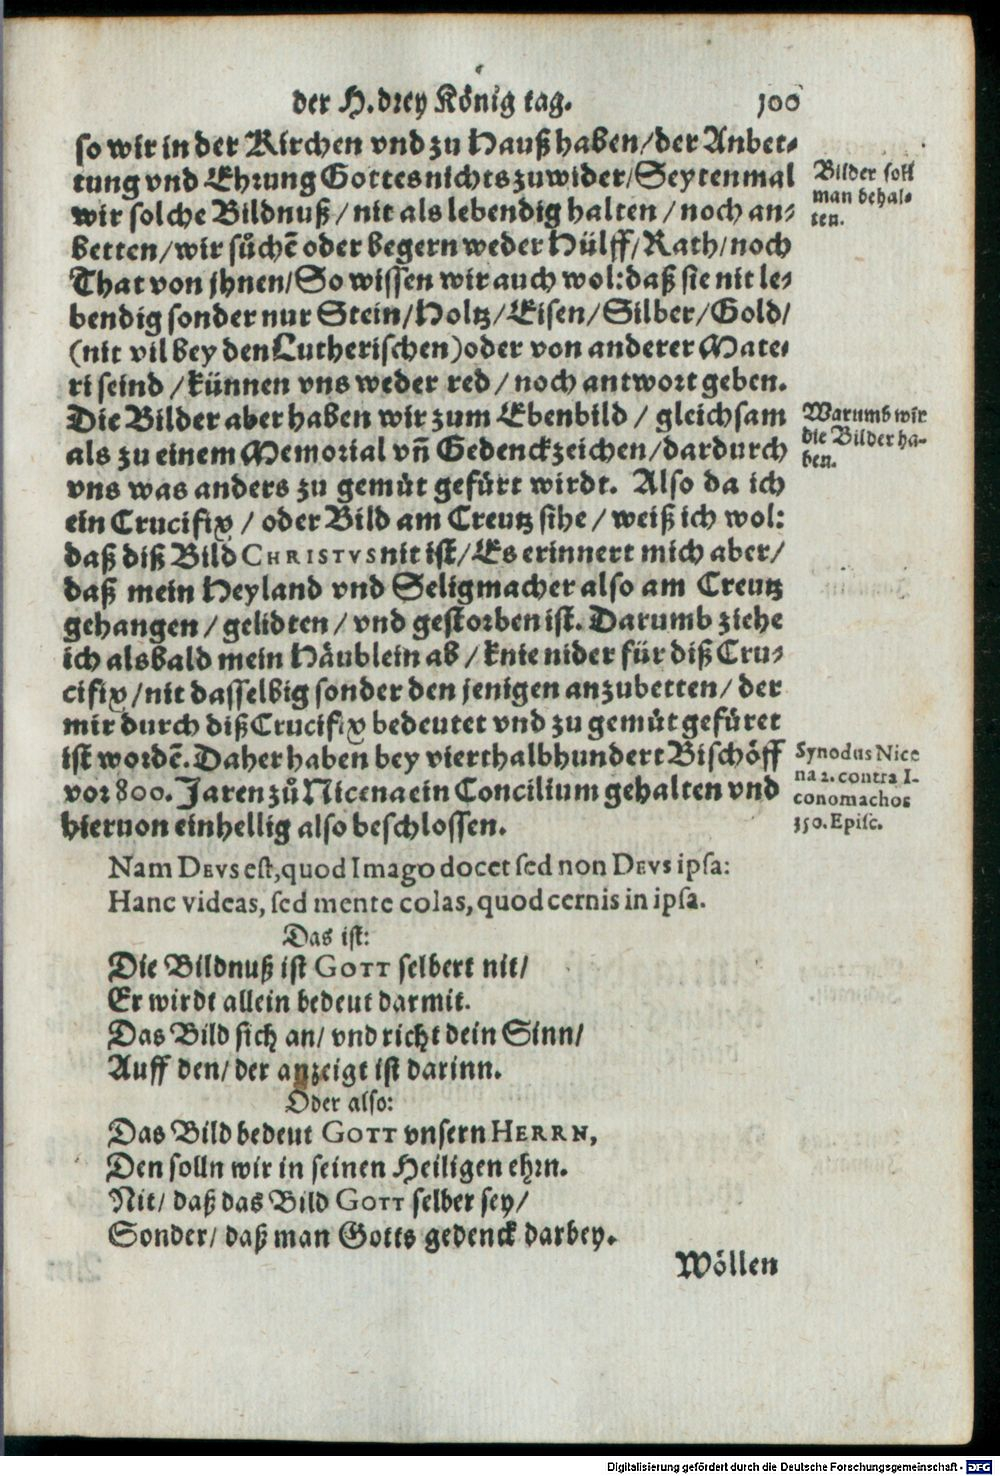 der H. drey König tag. 100
so wir in der Kirchen vnd zu Hauß haben/der Anbet-
tung vnd Ehrung Gottes nichts zuwider/Seytenmal
wir solche Bildnuß/nit als lebendig halten/noch an-
betten/wir sůchē oder begern weder Hülff/Rath/noch
That von jhnen/So wissen wir auch wol:daß sie nit le-
bendig sonder nur Stein/Holtz/Eisen/Silber/Gold/
(nit vil bey den Lutherischen)oder von anderer Mate-
ri seind/künnen vns weder red/noch antwort geben.
Die Bilder aber haben wir zum Ebenbild/gleichsam
als zu einem Memorial vñ Gedenckzeichen/dardurch
vns was anders zu gemüt gefürt wirdt. Also da ich
ein Crucifix/oder Bild am Creutz sihe/weiß ich wol:
daß diß Bild CHRISTVS nit ist/Es erinnert mich aber/
daß mein Heyland vnd Seligmacher also am Creutz
gehangen/gelidten/vnd gestorben ist. Darumb ziehe
ich alsbald mein Häublein ab/knie nider für diß Cru-
cifix/nit dasselbig sonder den jenigen anzubetten/der
mir durch diß Crucifix bedeutet vnd zu gemüt gefüret
ist wordē. Daher haben bey vierthalbhundert Bischöff
vor 800. Jaren zů Nicena ein Concilium gehalten vnd
hieruon einhellig also beschlossen.
Nam DEVS est, quod Imago docet sed non DEVS ipsa:
Hanc videas, sed mente colas, quod cernis in ipsa.
Das ist:
Die Bildnuß ist GOTT selbert nit/
Er wirdt allein bedeut darmit.
Das Bild sich an/vnd richt dein Sinn/
Auff den/der anzeigt ist darinn.
Oder also:
Das Bild bedeut GOTT vnsern HERRN,
Den solln wir in seinen Heiligen ehrn.
Nit/daß das Bild GOTT selber sey/
Sonder/daß man Gotts gedenck darbey.
Wöllen
Bilder soll
man behal-
ten.
Warumb wir
die Bilder ha-
ben.
Synodus Nice
na 2. contra I-
conomachos
350. Episc.
Digitalisierung gefördert durch die Deutsche Forschungsgemeinschaft - DFG